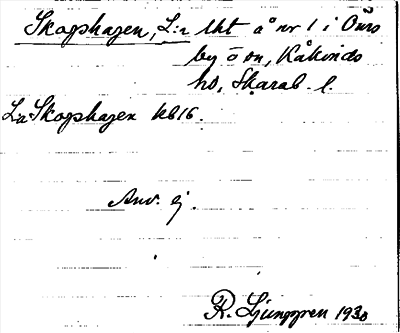 Skogshagen, L:a lht å nr 1 i Övro
by o on, Kåkinds
hd, Skarab. l.
L:a Skogshagen kb 16.
Anv. ej.
R. Ljunggren 1930